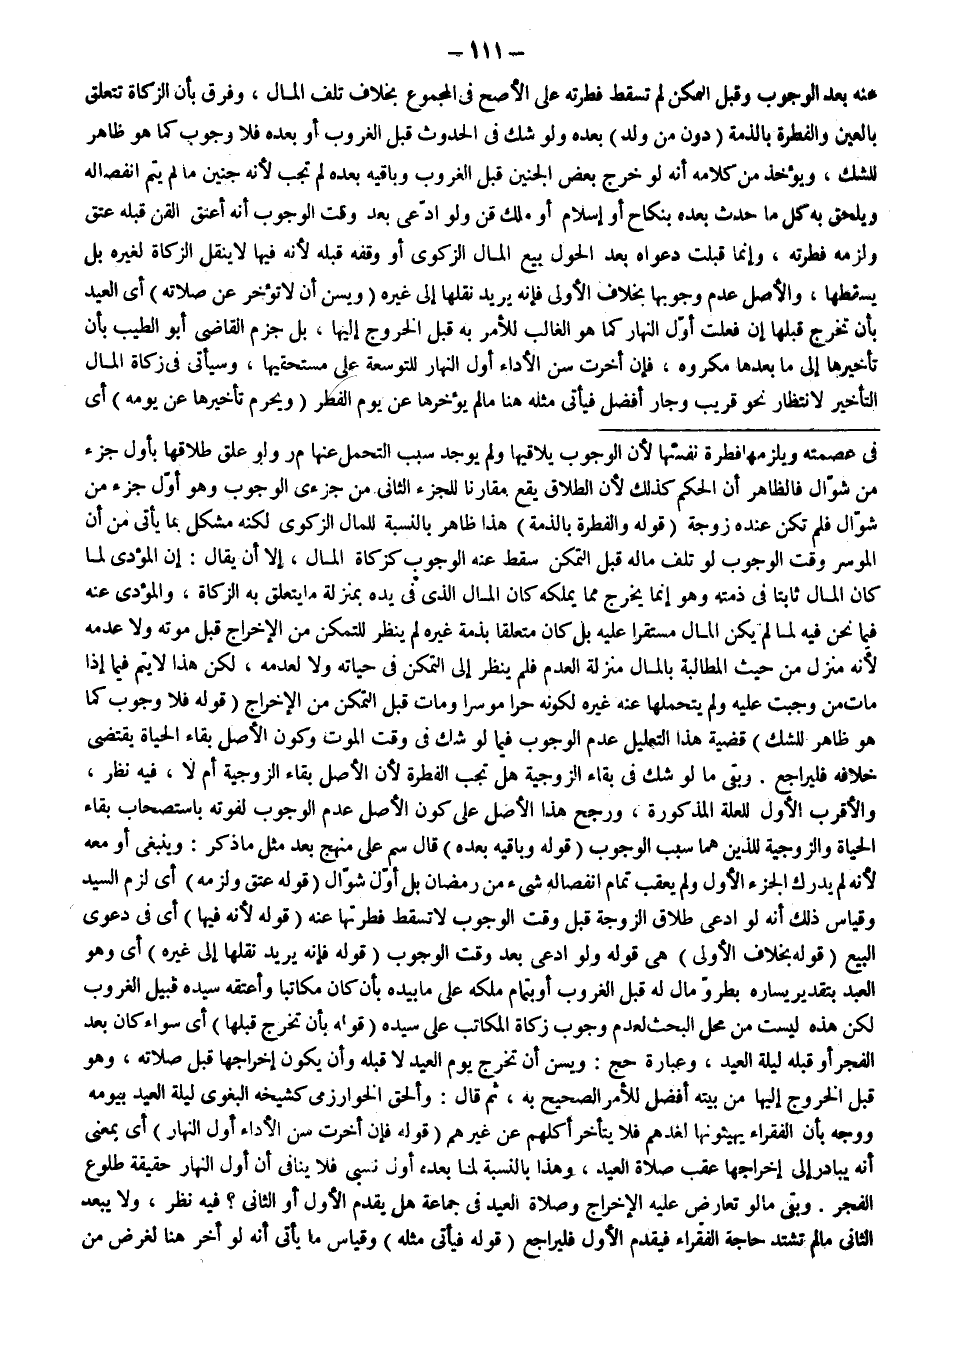 – ١١١ –
عنه بعد الوجوب وقبل التمكن لم تسقط فطرته على الأصح فى المجموع بخلاف تلف المال ، وفرق بأن الزكاة تتعلق
بالعين والفطرة بالذمة ( دون من ولد ) بعده ولو شك فى الحدوث قبل الغروب أو بعده فلا وجوب كما هو ظاهر
للشك ، ويؤخذ من كلامه أنه لو خرج بعض الجنين قبل الغروب وباقيه بعده لم تجب لأنه جنين ما لم يتم انفصاله
ويلحق به كل ما حدث بعده بنكاح أو إسلام أو ملك قن ولو ادّعى بعد وقت الوجوب أنه أعنق القن قبله عتق
ولزمه فطرته ، وإنما قبلت دعواه بعد الحول بيع المال الزكوى أو وقفه قبله لأنه فيها لاينقل الزكاة لغيره بل
يسقطها ، والأصل عدم وجوبها بخلاف الأولى فإنه يريد نقلها إلى غيره ( ويسن أن لاتؤخر عن صلاته ) أى العيد
بأن تخرج قبلها إن فعلت أوّل النهار كما هو الغالب للأمر به قبل الخروج إليها ، بل جزم القاضى أبو الطيب بأن
تأخيرها إلى ما بعدها مكروه ، فإن أخرت سن الأداء أول النهار للتوسعة على مستحقيها ، وسيأتى فى زكاة المال
التأخير لانتظار نحو قريب وجار أفضل فيأتى مثله هنا مالم يؤخرها عن يوم الفطر ( ويحرم تأخيرها عن يومه ) أى
فى عصمته ويلزمها فطرة نفسها لأن الوجوب يلاقيها ولم يوجد سبب التحمل عنها م ر ولو علق طلاقها بأول جزء
من شوّال فالظاهر أن الحكم كذلك لأن الطلاق يقع مقارنا للجزء الثانى من جزءى الوجوب وهو أوّل جزء من
شوّال فلم تكن عنده زوجة ( قوله والفطرة بالذمة ) هذا ظاهر بالنسبة للمال الزكوى لكنه مشكل بما يأتى من أن
الموسر وقت الوجوب لو تلف ماله قبل التمكن سقط عنه الوجوب كزكاة المال ، إلا أن يقال : إن المؤدى لما
كان المال ثابتا فى ذمته وهو إنما يخرج مما يملكه كان المال الذى فى يده بمنزلة مايتعلق به الزكاة ، والمؤدى عنه
فيما نحن فيه لما لم يكن المال مستقرا عليه بل كان متعلقا بذمة غيره لم ينظر للتمكن من الإخراج قبل موته ولا عدمه
لأنه منزل من حيث المطالبة بالمال منزلة العدم فلم ينظر إلى التمكن فى حياته ولا لعدمه ، لكن هذا لايتم فيما إذا
مات من وجبت عليه ولم يتحملها عنه غيره لكونه حرا موسرا ومات قبل التمكن من الإخراج ( قوله فلا وجوب كما
هو ظاهر للشك ) قضية هذا التعليل عدم الوجوب فيما لو شك فى وقت الموت وكون الأصل بقاء الحياة يقتضى
خلافه فليراجع . وبقى ما لو شك فى بقاء الزوجية هل تجب الفطرة لأن الأصل بقاء الزوجية أم لا ، فيه نظر ،
والأقرب الأول للعلة المذكورة ، ورجح هذا الأصل على كون الأصل عدم الوجوب لفوته باستصحاب بقاء
الحياة والزوجية للذين هما سبب الوجوب ( قوله وباقيه بعده ) قال سم على منهج بعد مثل ماذكر : وينبغى أو معه
لأنه لم يدرك الجزء الأول ولم يعقب تمام انفصاله شىء من رمضان بل أوّل شوّال ( قوله عتق ولزمه ) أى لزم السيد
وقياس ذلك أنه لو ادعى طلاق الزوجة قبل وقت الوجوب لاتسقط فطرتها عنه ( قوله لأنه فيها ) أى فى دعوى
البيع ( قوله بخلاف الأولى ) هى قوله ولو ادعى بعد وقت الوجوب ( قوله فإنه يريد نقلها إلى غيره ) أى وهو
العبد بتقدير يساره بطروّ مال له قبل الغروب أو بتمام ملكه على مابيده بأن كان مكاتبا وأعتقه سيده قبيل الغروب
لكن هذه ليست من محل البحث لعدم وجوب زكاة المكاتب على سيده ( قوله بأن تخرج قبلها ) أى سواء كان بعد
الفجر أو قبله ليلة العيد ، وعبارة حج : ويسن أن تخرج يوم العيد لا قبله وأن يكون إخراجها قبل صلاته ، وهو
قبل الخروج إليها من بيته أفضل للأمر الصحيح به ، ثم قال : وألحق الخوارزمى كشيخه البغوى ليلة العيد بيومه
ووجه بأن الفقراء يهيئونها لغدهم فلا يتأخر أكلهم عن غيرهم ( قوله فإن أخرت سن الأداء أول النهار ) أى بمعنى
أنه يبادر إلى إخراجها عقب صلاة العيد ، وهذا بالنسبة لما بعده أول نسبى فلا ينافى أن أول النهار حقيقة طلوع
الفجر . وبقى مالو تعارض عليه الإخراج وصلاة العيد فى جماعة هل يقدم الأول أو الثانى ؟ فيه نظر ، ولا يبعد
الثانى مالم تشتد حاجة الفقراء فيقدم الأول فليراجع ( قوله فيأتى مثله ) وقياس ما يأتى أنه لو أخر هنا لغرض من